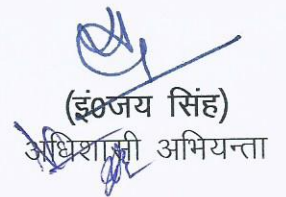 (इं०जय सिंह)
अधिशासी अभियन्ता